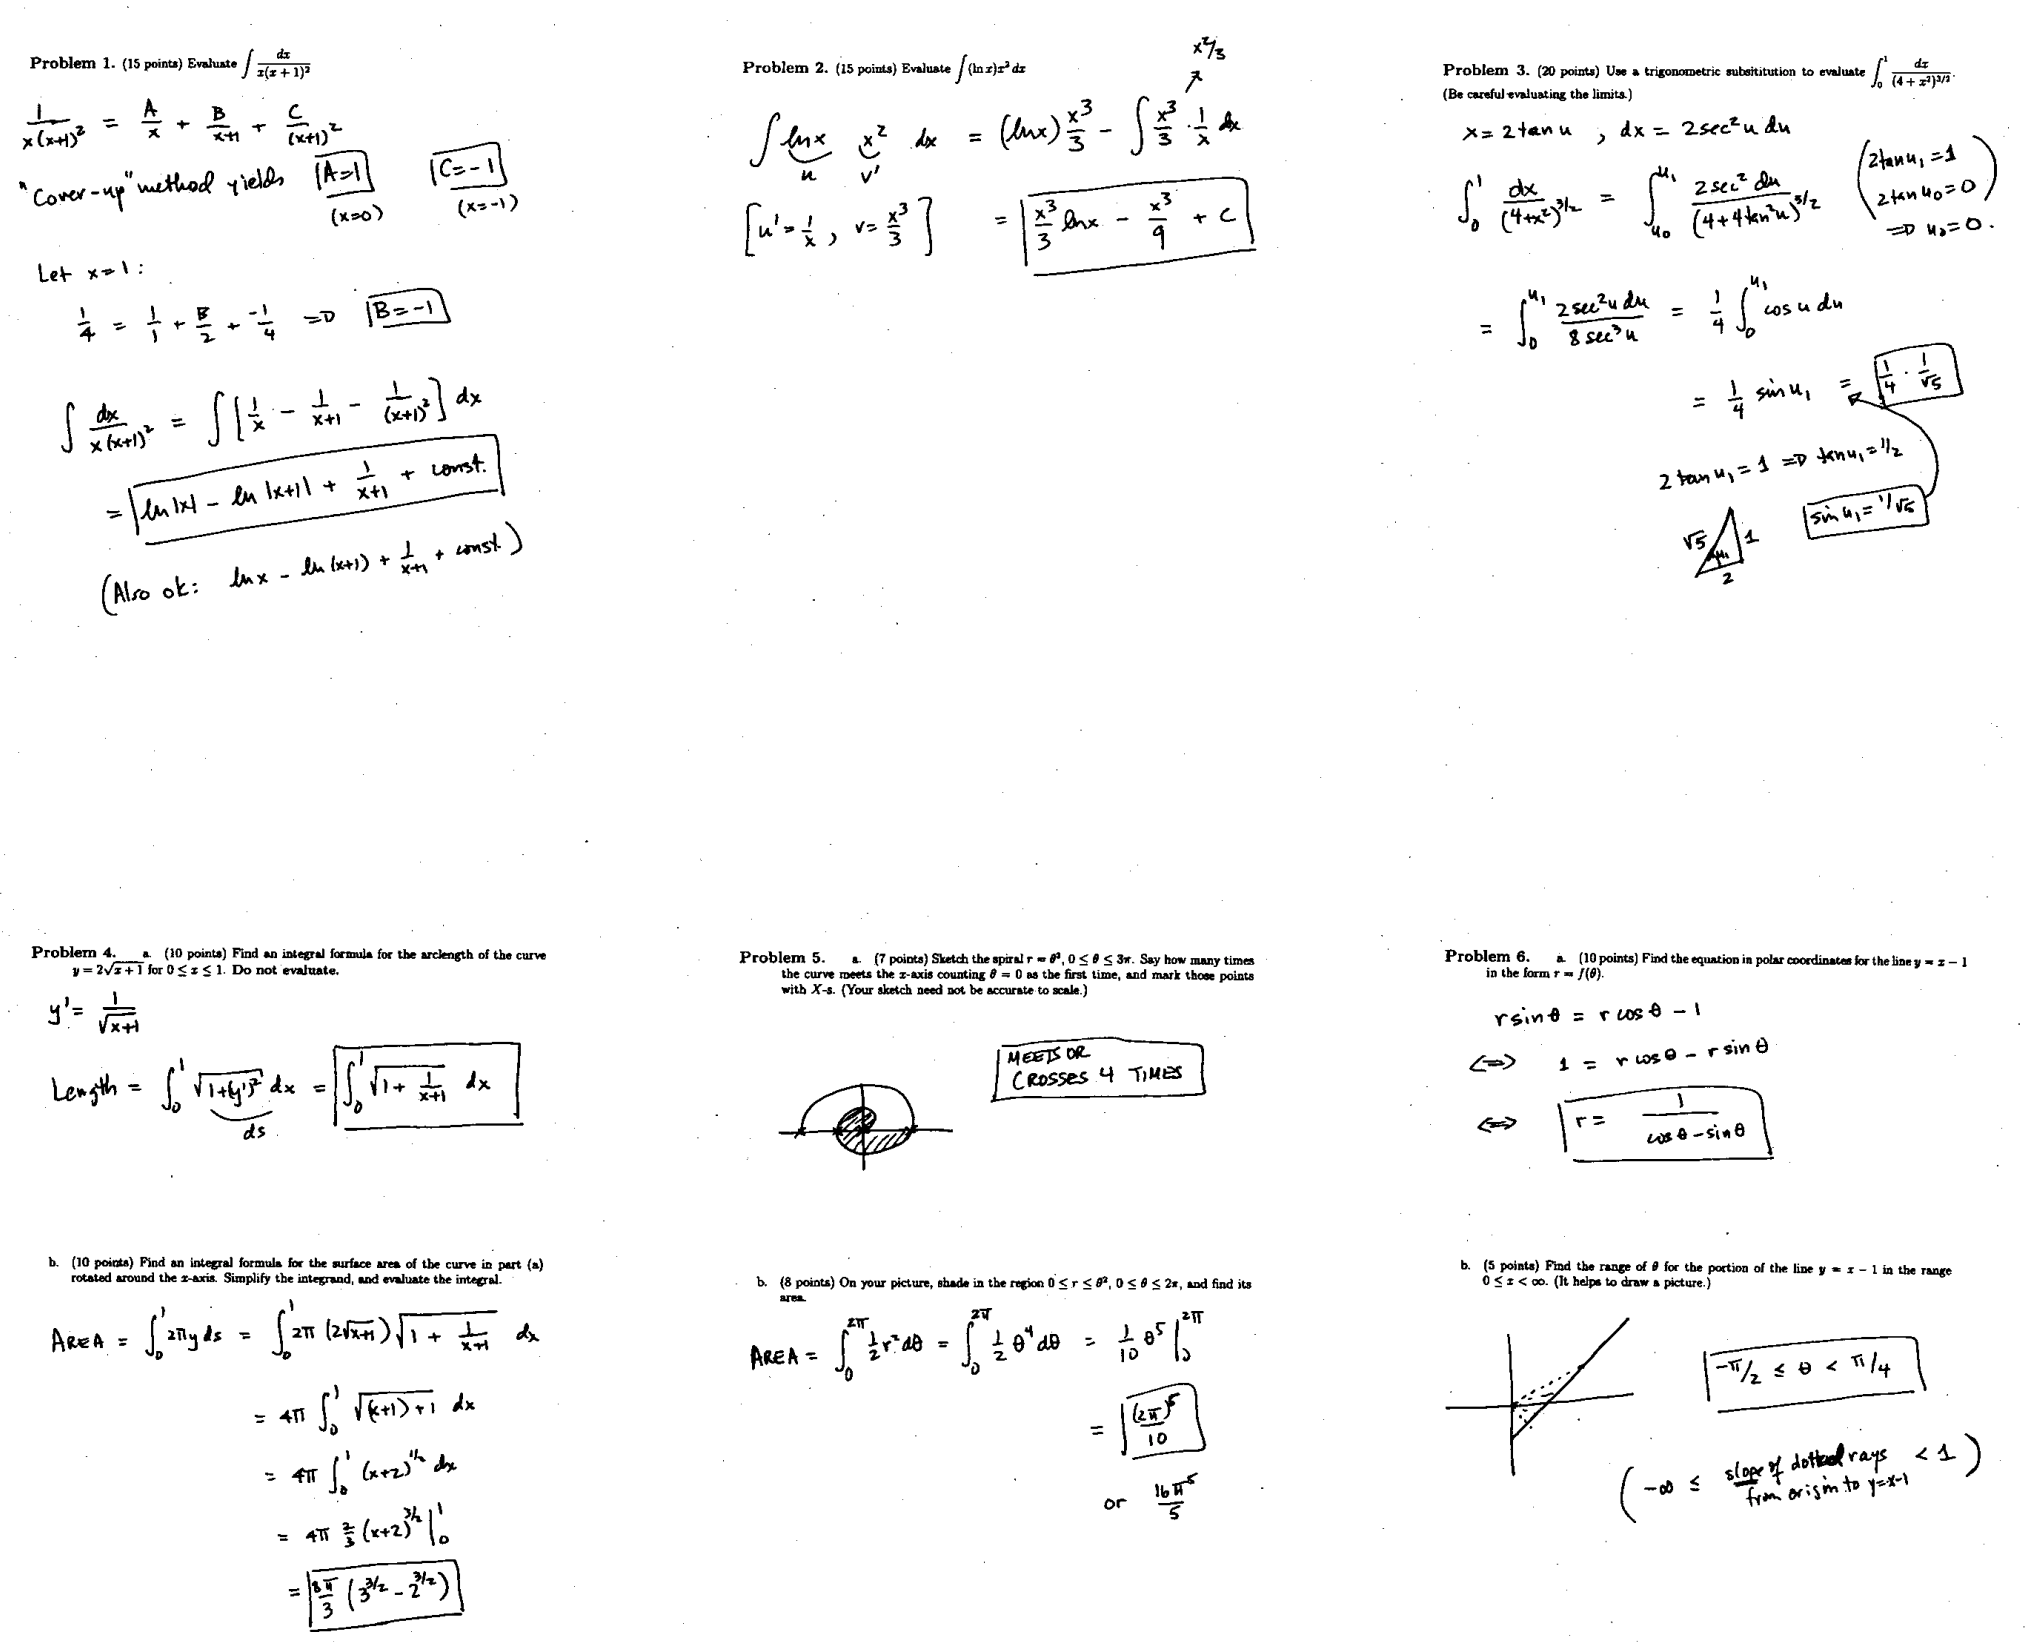 Problem 1. (15 points) Evaluate ∫ dx/(x(x + 1)²)
1/(x(x+1)²) = A/x + B/(x+1) + C/(x+1)²
"Cover-up" method yields A=1 C=-1
(x=0) (x=-1)
Let x=1:
1/4 = 1/1 + B/2 + -1/4 ⇒ B=-1
∫ dx/(x(x+1)²) = ∫ [1/x - 1/(x+1) - 1/(x+1)²] dx
= ln|x| - ln|x+1| + 1/(x+1) + const.
(Also ok: ln x - ln(x+1) + 1/(x+1) + const.)
Problem 2. (15 points) Evaluate ∫(ln x)x² dx
x²/3
∫ ln x x² dx = (ln x) x³/3 - ∫ x³/3 · 1/x dx
u v'
[u' = 1/x, v = x³/3] = x³/3 ln x - x³/9 + C
Problem 3. (20 points) Use a trigonometric subsititution to evaluate ∫₀¹ dx/(4 + x²)^(3/2).
(Be careful evaluating the limits.)
x = 2 tan u , dx = 2 sec² u du
∫₀¹ dx/(4+x²)^(3/2) = ∫_{u₀}^{u₁} 2 sec² du/(4+4tan²u)^(3/2) (2tan u₁ = 1
2tan u₀ = 0)
⇒ u₀ = 0.
= ∫₀^{u₁} 2 sec²u du/(8 sec³ u) = 1/4 ∫₀^{u₁} cos u du
= 1/4 sin u₁ = 1/4 · 1/√5
2 tan u₁ = 1 ⇒ tan u₁ = 1/2
sin u₁ = 1/√5
√5 u₁ 1
2
Problem 4. a. (10 points) Find an integral formula for the arclength of the curve
y = 2√(x + 1) for 0 ≤ x ≤ 1. Do not evaluate.
y' = 1/√(x+1)
Length = ∫₀¹ √(1+(y')²) dx = ∫₀¹ √(1 + 1/(x+1)) dx
ds
b. (10 points) Find an integral formula for the surface area of the curve in part (a)
rotated around the x-axis. Simplify the integrand, and evaluate the integral.
AREA = ∫₀¹ 2πy ds = ∫₀¹ 2π (2√(x+1)) √(1 + 1/(x+1)) dx
= 4π ∫₀¹ √((x+1)+1) dx
= 4π ∫₀¹ (x+2)^(1/2) dx
= 4π 2/3 (x+2)^(3/2) |₀¹
= 8π/3 (3^(3/2) - 2^(3/2))
Problem 5. a. (7 points) Sketch the spiral r = θ², 0 ≤ θ ≤ 3π. Say how many times
the curve meets the x-axis counting θ = 0 as the first time, and mark those points
with X-s. (Your sketch need not be accurate to scale.)
MEETS OR
CROSSES 4 TIMES
b. (8 points) On your picture, shade in the region 0 ≤ r ≤ θ², 0 ≤ θ ≤ 2π, and find its
area.
AREA = ∫₀^{2π} 1/2 r² dθ = ∫₀^{2π} 1/2 θ⁴ dθ = 1/10 θ⁵ |₀^{2π}
= (2π)⁵/10
or 16π⁵/5
Problem 6. a. (10 points) Find the equation in polar coordinates for the line y = x - 1
in the form r = f(θ).
r sin θ = r cos θ - 1
⇔ 1 = r cos θ - r sin θ
⇔ r = 1/(cos θ - sin θ)
b. (5 points) Find the range of θ for the portion of the line y = x - 1 in the range
0 ≤ x < ∞. (It helps to draw a picture.)
-π/2 ≤ θ < π/4
(-∞ ≤ slope of dotted rays < 1)
from origin to y=x-1